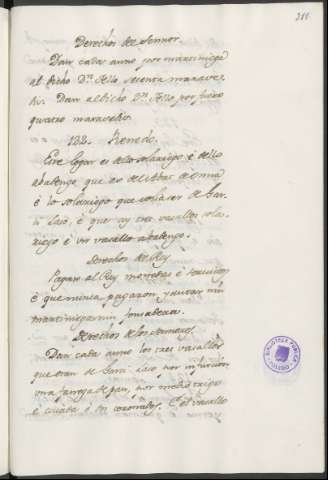 211
Derechos del Sennor.
Dan cada anno por martiniega
al dicho Dn. Tello setenta marave-
dis. Dan al dicho Dn. Tello por fuero
quatro maravedis.
132. Renedo.
Este logar es dello solariego é dello
abadengo que es del Abat de
é lo solariego que es de Gar-
Laso, é que ay tres vasallos sola-
riego é un vasallo abadengo.
Derechos del Rey
Pagan al Rey monedas é servicios,
é que nunca pagaron yantar nin
martiniega nin fonsadera.
Derechos de los
Dan cada anno los tres vasallos
que eran de Garci Laso por infurcion
una fanega de pan, por medio trigo
é cevada é dos E el vasallo
BIBLIOTECA PUBLICA
TOLEDO